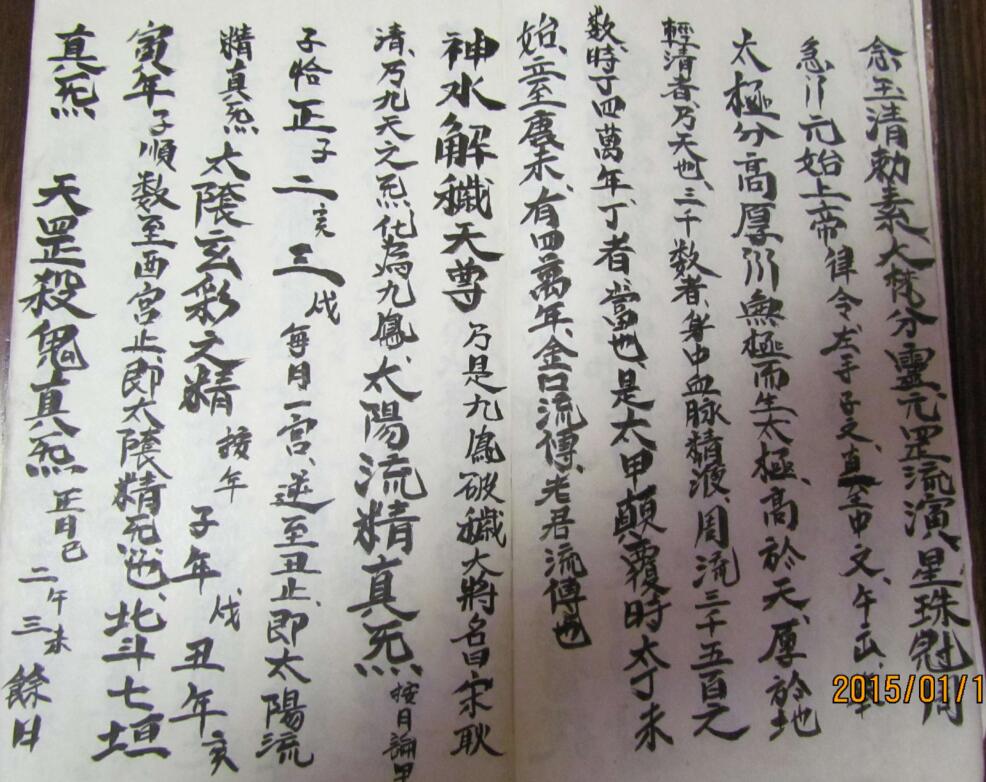 念玉清勅素大梵分靈元罡流演星珠冠周
急川元始上帝律令左手子文直至中文午出
太極分高厚川無極而生太極高於天厚於地
輕清者乃天也三千數者身中血脉精液周流三千五百之
數時丁四萬年丁者當也是太甲顛覆時太丁未
始立至庚未有四萬年金口流傳老君流傳也
神水解穢天尊 乃是九鳳破穢大將名曰宋耿
清乃九天之炁化為九鳳太陽流精真炁 按月論甲
子恰正子二亥三戌每月一宮逆至丑止即太陽流
精真炁太陰玄彩之精 按年子年戌丑年亥
寅年子順数至酉宮止即太陰精炁也北斗七垣
真炁 天罡殺鬼真炁 正日巳二午三未餘日
2015/01/1